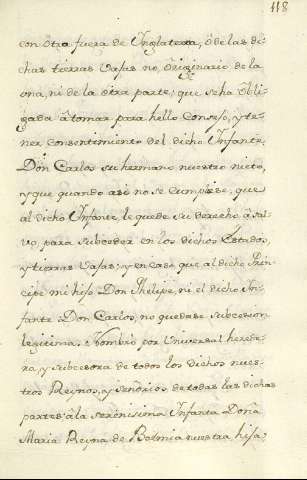 118
con otra fuera de Ynglaterra, ô de las di-
chas tierras Vajas no originario de la
una, ni de la otra parte; que seha Obli-
gado â tomar para hello Consejo, y te-
ner consentimiento del dicho Ynfante
Don Carlos su hermano nuestro nieto,
y que quando asi no se cumpliese, que
al dicho Ynfante le quede su derecho â sal-
vo, para subceder en los dichos Estados,
y tierras Vajas; y en caso que al dicho Prin-
cipe mi hijo Don Phelipe, ni el dicho In-
fante Don Carlos, no quedase subcesion
legitima, ê nombro por Universal herede-
ra y subcesora de todos los dichos nues-
tros Reynos, y señorios de todas las dichas
partes â la serenisima Infanta Doña
Maria Reyna de Boemia nuestra hija;